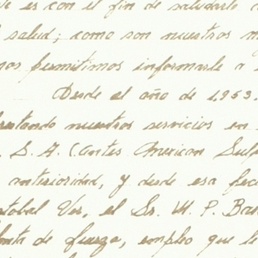 es con el fin de saludarle
salud; como son nuestros
nos permitimos informarle a
Desde el año de 1953.
prestando nuestros servicios en
S. A. (antes American Sulp
anterioridad, y desde esa fec
stobal Ver, el Sr. W. P. Ba
nta de fuerza, empleo que le